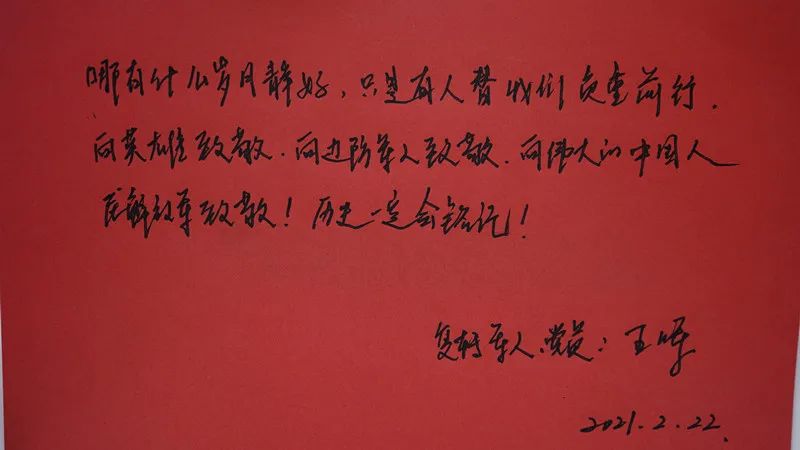 哪有什么岁月静好，只是有人替我们负重前行。
向英雄致敬.向边防军人致敬.向伟大的中国人
民解放军致敬！历史一定会铭记！
复转军人.党员：王
2021.2.22.